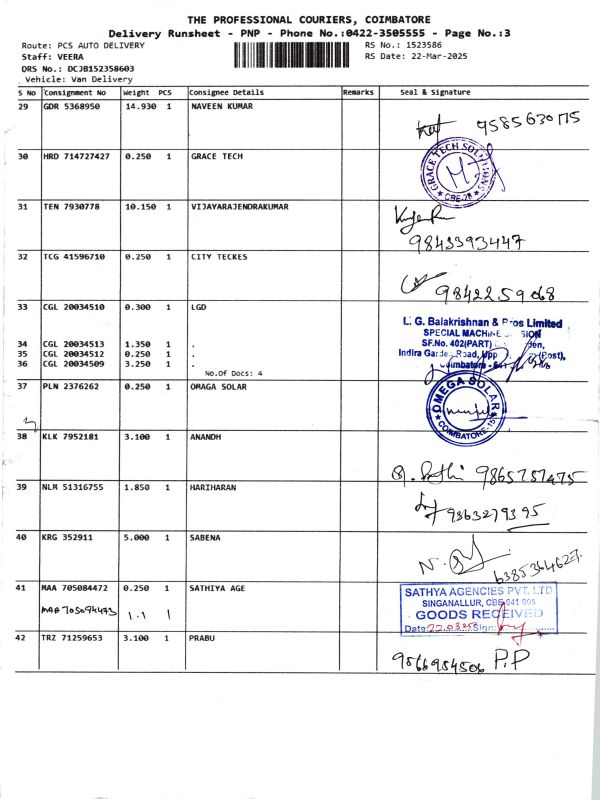 THE PROFESSIONAL COURIERS, COIMBATORE
Delivery Runsheet - PNP - Phone No.:0422-3505555 - Page No.:3
Route: PCS AUTO DELIVERY RS No.: 1523586
Staff: VEERA RS Date: 22-Mar-2025
DRS No.: DCJB152358603
Vehicle: Van Delivery
S No Consignment No Weight PCS Consignee Details Remarks Seal & Signature
29 GDR 5368950 14.930 1 NAVEEN KUMAR
30 HRD 714727427 0.250 1 GRACE TECH
GRACE TECH SOLUTIONS
31 TEN 7930778 10.150 1 VIJAYARAJENDRAKUMAR
9843393447
32 TCG 41596710 0.250 1 CITY TECKES
9842259068
33 CGL 20034510 0.300 1 LGD
L. G. Balakrishnan & Bros Limited
SPECIAL MACHINE
SF.No. 402(PART)
34 CGL 20034513 1.350 1 .
35 CGL 20034512 0.250 1 .
Road, (Post),
36 CGL 20034509 3.250 1 .
Coimbatore
No.Of Docs: 4
37 PLN 2376262 0.250 1 OMAGA SOLAR
OMEGA SOLAR
COIMBATORE-15
38 KLK 7952181 3.100 1 ANANDH
9865787475
39 NLM 51316755 1.850 1 HARIHARAN
9363279395
40 KRG 352911 5.000 1 SABENA
6385364627
41 MAA 705084472 0.250 1 SATHIYA AGE
SATHYA AGENCIES PVT. LTD
SINGANALLUR, CBE-641 005
MAA 705094473 1.1 1
GOODS RECEIVED
Date: 22.03.25 Sign:
42 TRZ 71259653 3.100 1 PRABU
9566954506 P.P